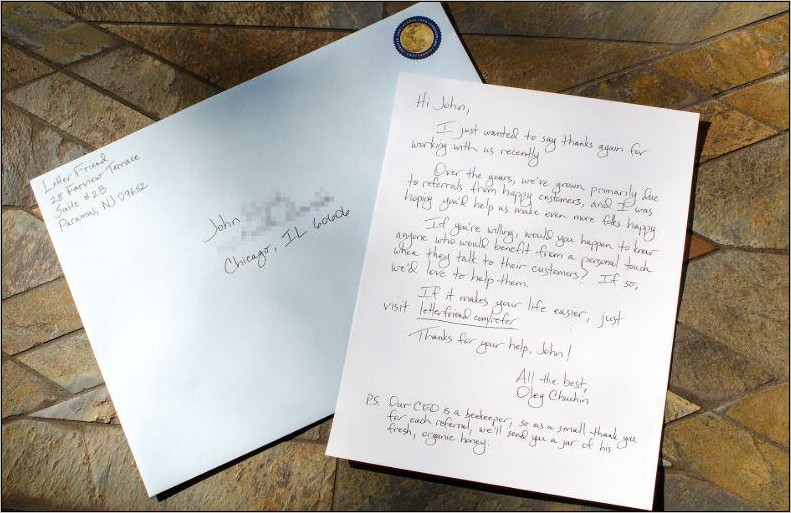 Letter Friend
28 Fairview Terrace
Suite #2B
Paramus, NJ 07652
John
Chicago, IL 60606
Hi John,
I just wanted to say thanks again for
working with us recently.
Over the years, we've grown primarily due
to referrals from happy customers, and I was
hoping you'd help us make even more folks happy.
If you're willing, would you happen to know
anyone who would benefit from a personal touch
when they talk to their customers? If so,
we'd love to help them.
If it makes your life easier, just
visit letterfriend.com/refer
Thanks for your help, John!
All the best,
Oleg Chuchin
P.S. Our CEO is a beekeeper, so as a small thank you
for each referral, we'll send you a jar of his
fresh, organic honey.